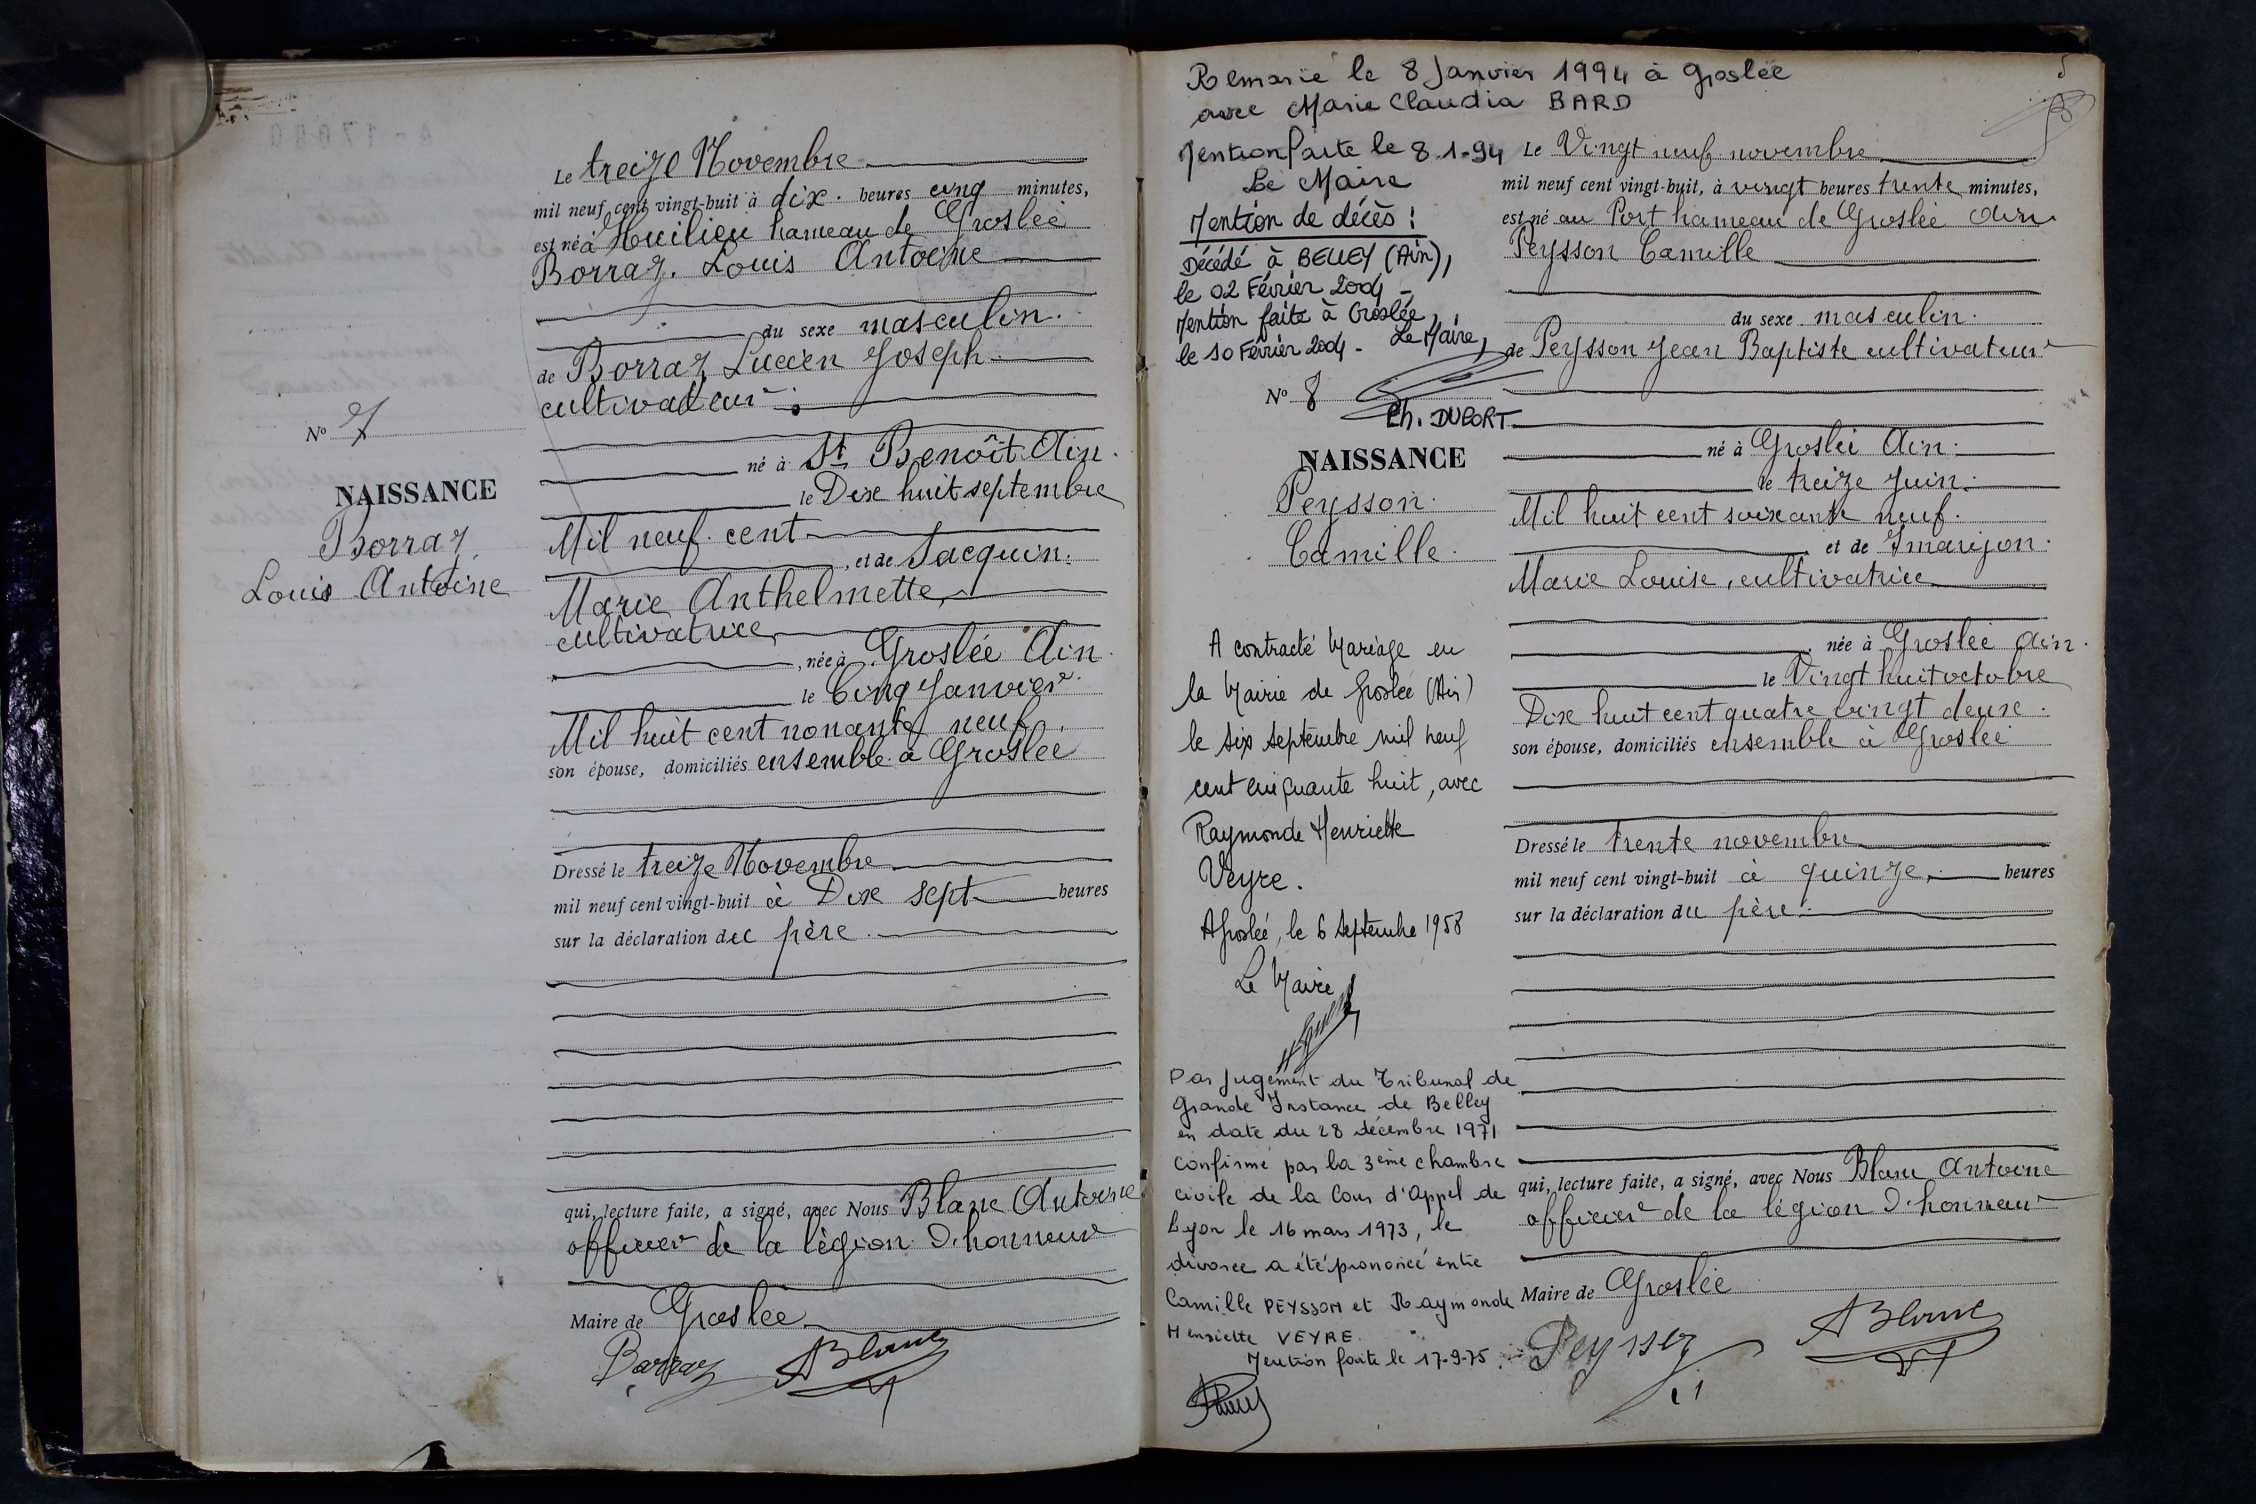 Le treize Novembre
mil neuf cent vingt-huit à dix heures cinq minutes,
est né à Huilieu hameau de Groslée
Borraz Louis Antoine
du sexe masculin.
de Borraz Lucien Joseph
cultivateur
né à St Benoît Ain.
le Dix huit septembre
Mil neuf cent
, et de Jacquin
Marie Anthelmette,
cultivatrice,
, née à Groslée Ain.
le Cinq Janvier
Mil huit cent nonante neuf.
son épouse, domiciliés ensemble à Groslée
Dressé le treize Novembre
mil neuf cent vingt-huit à Dix sept heures
sur la déclaration du père.
qui, lecture faite, a signé, avec Nous Blanc Antoine
officier de la légion d'honneur
Maire de Groslée
Borraz ABlanc
No 7
NAISSANCE
Borraz
Louis Antoine
5
Remarié le 8 Janvier 1994 à Groslée
avec Marie Claudia BARD
Mention faite le 8.1.94
Le Maire
Mention de décès :
Décédé à BELLEY (Ain),
le 02 Février 2004 -
Mention faite à Groslée,
le 10 Février 2004 - Le Maire,
Ch. DUPORT
No 8
NAISSANCE
Peysson.
Camille.
A contracté Mariage en
la Mairie de Groslée (Ain)
le six septembre mil neuf
cent cinquante huit, avec
Raymonde Henriette
Veyre.
A Groslée, le 6 Septembre 1958
Le Maire
Par jugement du Tribunal de
Grande Instance de Belley
en date du 28 décembre 1971
confirmé par la 3ème chambre
civile de la Cour d'Appel de
Lyon le 16 mars 1973, le
divorce a été prononcé entre
Camille PEYSSON et Raymonde
Henriette VEYRE.
Mention faite le 17-9-75.
Le Vingt neuf novembre
mil neuf cent vingt-huit, à vingt heures trente minutes,
est né au Port hameau de Groslée Ain
Peysson Camille
du sexe masculin.
de Peysson Jean Baptiste cultivateur
né à Groslée Ain.
le treize Juin.
Mil huit cent soixante neuf.
et de Jmarijon.
Marie Louise, cultivatrice
, née à Groslée Ain.
le Vingt huit octobre
Dix huit cent quatre vingt deux.
son épouse, domiciliés ensemble à Groslée
Dressé le trente novembre
mil neuf cent vingt-huit à quinze, heures
sur la déclaration du père.
qui, lecture faite, a signé, avec Nous Blanc Antoine
officier de la légion d'honneur
Maire de Groslée
ABlanc